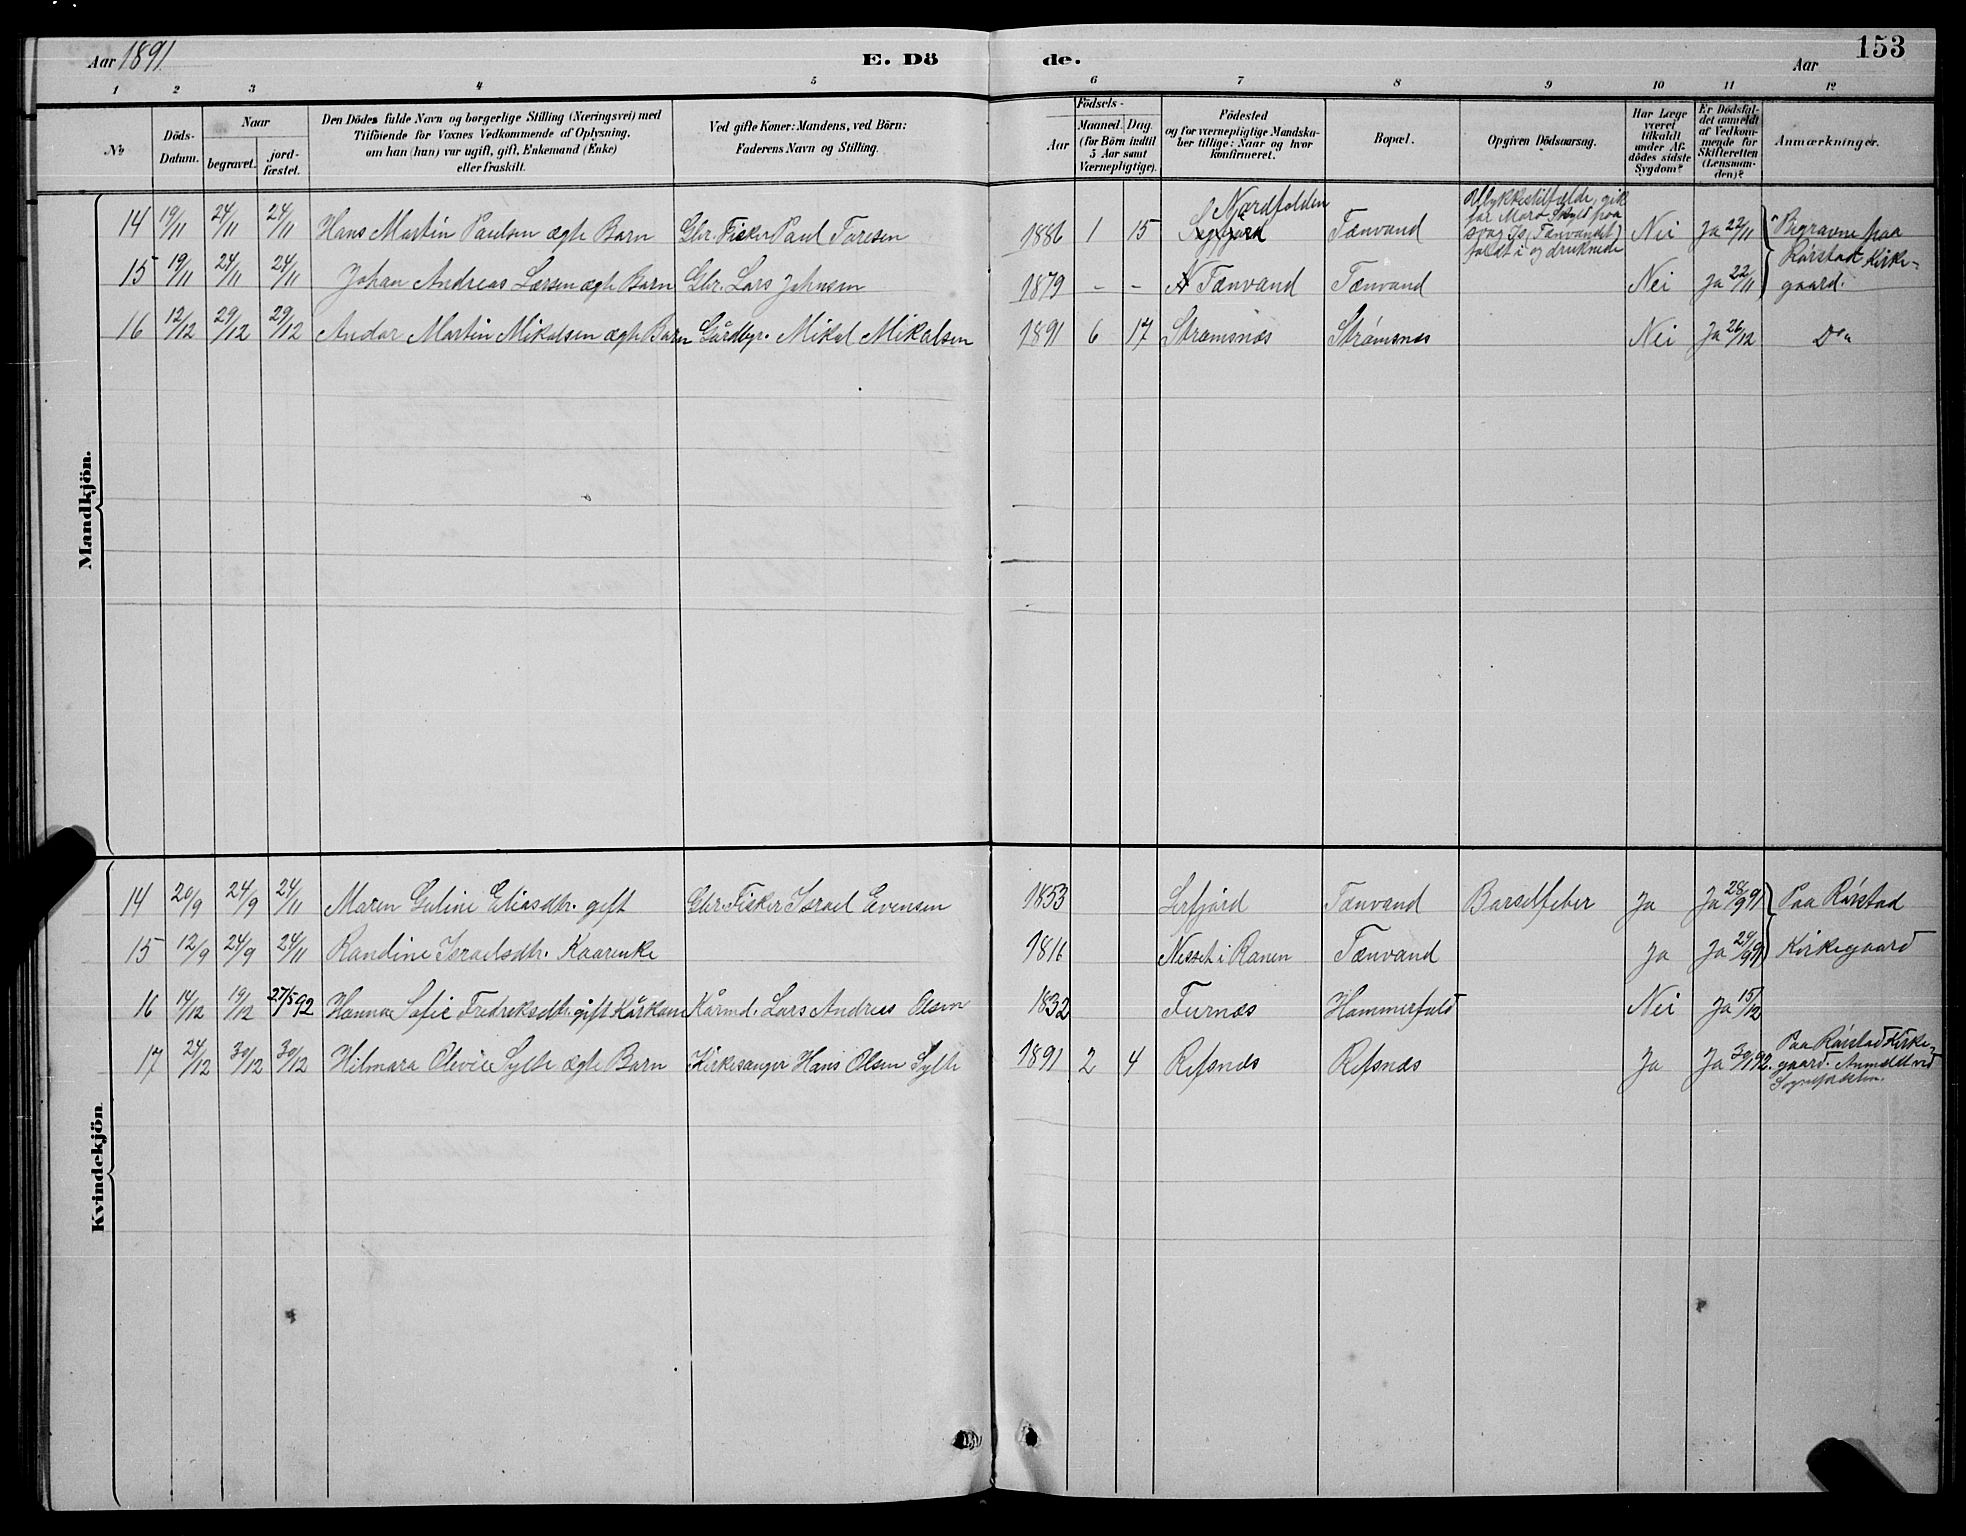 Aar 1891
E. Dö
de.
Aar
153
1 2 3 4 5 6 7 8 9 10 11 12
No
Döds-
Datum.
Naar
begravet.
jord-
fæstet.
Den Dödes fulde Navn og borgerlige Stilling (Næringsvei) med
Tilföiende for Voxnes Vedkommende af Oplysning.
om han (hun) var ugift, gift, Enkemand (Enke)
eller fraskilt.
Ved gifte Koner: Mandens, ved Börn:
Faderens Navn og Stilling.
Födsels-
Aar
Maaned.
Dag.
(for Börn indtil
5 Aar samt
Værnepligtige).
Födested
og for værnepligtige Mandska-
ber tillige: Naar og hvor
konfirmeret.
Bopæl.
Opgiven Dödsaarsag.
Har Læge
været
tilkaldt
under Af-
dödes sidste
Sygdom?
Er Dödsfal-
det anmeldt
af Vedkom-
mende for
Skifteretten
(Lensman-
den)?
Anmærkninger.
Mandkjön.
14 19/11 24/11 24/11 Hans Martin Paulsen ægte Barn Gbr. Fisker Paul Toresen 1886 1 15 Nordfolden Tænvand Ulykkestilfælde, gik
paa
svag Is (Tænvandet)
faldt i og druknede Nei Ja 22/11 Begravne paa
Rörstad Kirke-
gaard.
15 19/11 24/11 24/11 Johan Andreas Larsen ægte Barn Gbr. Lars Johnsen 1879 - - Tænvand Tænvand Nei Ja 22/11
16 12/12 29/12 29/12 Andor Martin Mikalsen ægte Barn Gårdbgr. Mikal Mikalsen 1891 6 17 Strømsnæs Strømsnæs Nei Ja 26/12 Do
Kvindekjön
14 20/9 24/9 24/11 Maren Guline Eliasdtr. gift Gbr. Fisker Israel Evensen 1853 Serfjord Tænvand Barselfeber Ja Ja 28/9 91 Paa Rörstad
15 12/9 24/9 24/11 Randine Israelsdtr. Kaarenke 1816 Nesset i Ranen Tænvand Ja Ja 29/9 91 Kirkegaard
16 14/12 19/12 27/5 92 Hanna Sofie Fredriksdtr. gift Kårkone Kårmd. Lars Andreas Olsen 1832 Furnæs Hammerfald Nei Ja 15/12
17 24/12 30/12 30/12 Hilmara Olevie Sylte ægte Barn Kirkesanger Hans Olsen Sylte 1891 2 4 Refsnæs Refsnæs Ja Ja 30/1 92. Paa Rörstad Kirke-
gaard. Anmeldt ved